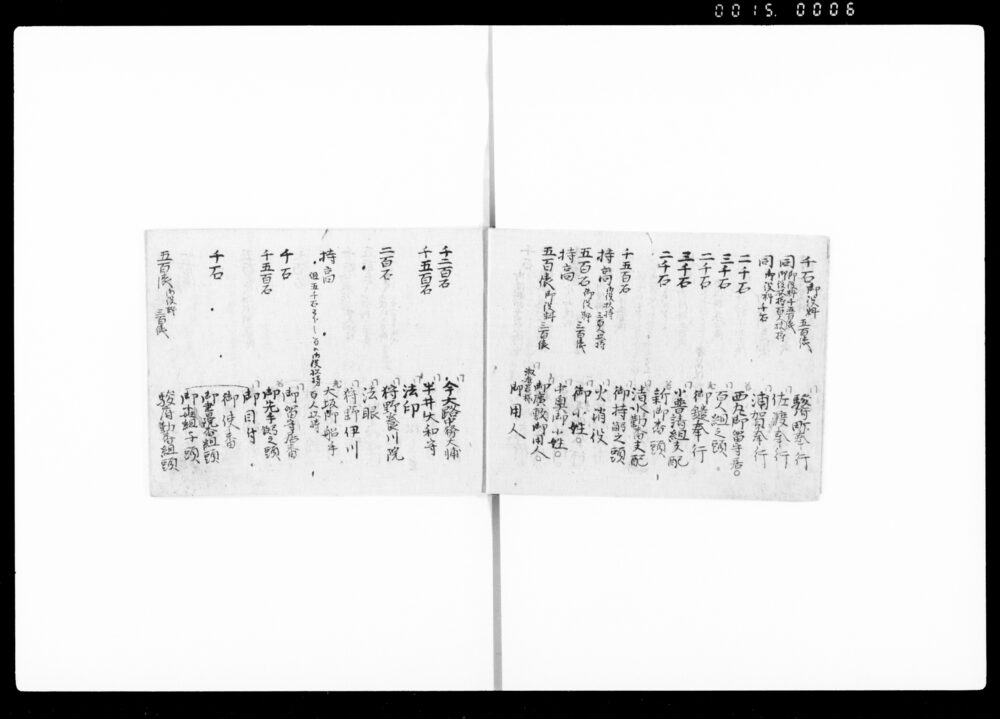 0015. 0006
千石御役料 五百俵
駿府町奉行
同御役料千五百俵 御役扶持百人扶持
佐渡奉行
同御役料千石
浦賀奉行
二千石
西丸御留守居
三千石
百人組之頭
二千石
御鎗奉行
三千石
小普請組支配
二千石
新御番頭
清水勤番支配
千五百石
御持弓之頭
持高 御役扶持 三百人扶持
火消役
五百石 御役料 三百俵
御小姓
持高
中奥御小姓
五百俵 御役料 三百俵
御広敷御用人
御用人
千二百石
今大路 大輔
千五百石
半井大和守
法印
二百石
狩野 川院
法眼
狩野伊川
持高
大坂御船手
千石
御留守居番
千五百石
御先手
御目付
千石
御使番
御書院番組頭
御小姓組
五百俵 御役料 三百俵
駿府勤番組頭